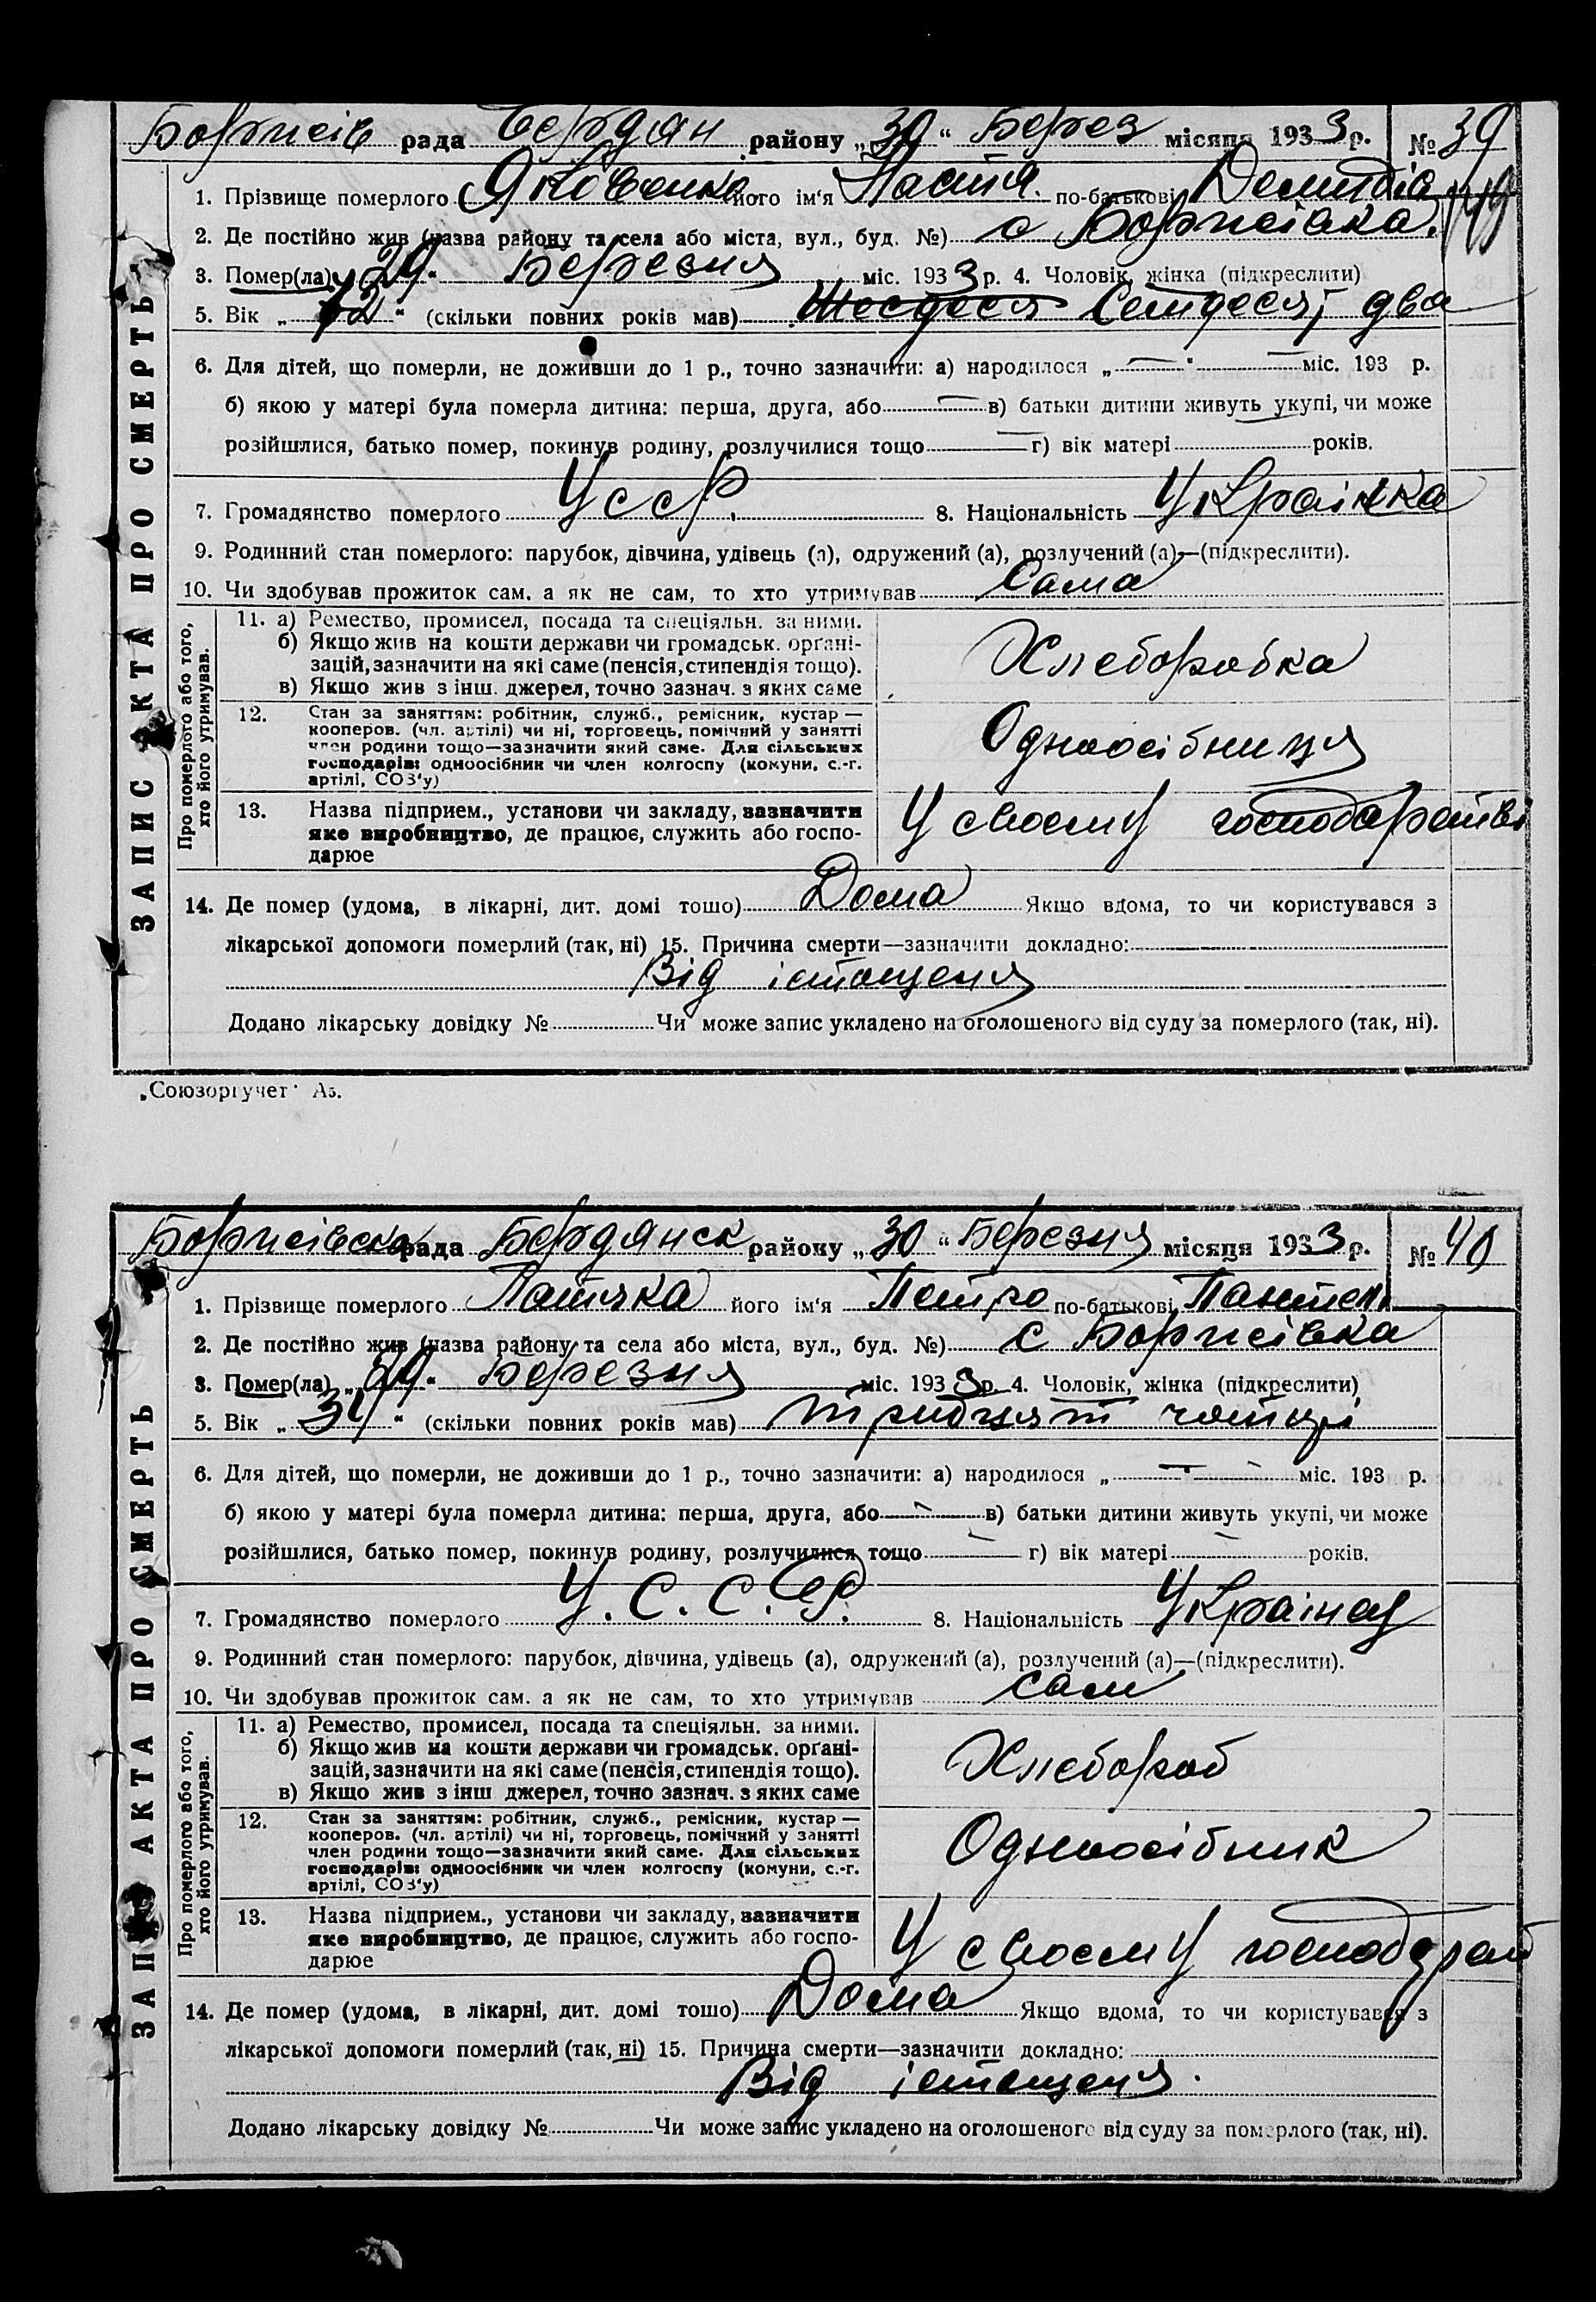 Борисів рада Бердян району „30“ Берез місяця 1933 р. № 39
1. Прізвище померлого Яковенко його ім'я Настя по-батькові
2. Де постійно жив (назва району та села або міста, вул., буд. №) с Борисівка.
3. Помер(ла) „29“ Березня міс. 1933 р. 4. Чоловік, жінка (підкреслити)
5. Вік „72“ (скільки повних років мав) Шесдеся Семдесят два
6. Для дітей, що померли, не доживши до 1 р., точно зазначити: а) народилося „—“ — міс. 193 р.
б) якою у матері була померла дитина: перша, друга, або — в) батьки дитини живуть укупі, чи може
розійшлися, батько помер, покинув родину, розлучилися тощо — г) вік матері років.
7. Громадянство померлого УССР. 8. Національність Українка
9. Родинний стан померлого: парубок, дівчина, удівець (а), одружений (а), розлучений (а)—(підкреслити).
10. Чи здобував прожиток сам, а як не сам, то хто утримував Сама
ЗАПИС АКТА ПРО СМЕРТЬ
Про померлого або того,
хто його утримував.
11. а) Ремество, промисел, посада та спеціяльн. за ними.
б) Якщо жив на кошти держави чи громадськ. орґані-
зацій, зазначити на які саме (пенсія, стипендія тощо).
в) Якщо жив з інш. джерел, точно зазнач. з яких саме
Хлеборобка
12. Стан за заняттям: робітник, служб., ремісник, кустар —
кооперов. (чл. артілі) чи ні, торговець, помічний у занятті
член родини тощо—зазначити який саме. Для сільських
господарів: одноосібник чи член колгоспу (комуни, с.-г.
артілі, СОЗ'у)
Одноосібниця
13. Назва підприєм., установи чи закладу, зазначити
яке виробництво, де працює, служить або госпо-
дарює
У своему господарстві
14. Де помер (удома, в лікарні, дит. домі тощо) Дома Якщо вдома, то чи користувався з
лікарської допомоги померлий (так, ні) 15. Причина смерти—зазначити докладно:
Від істощеня
Додано лікарську довідку № Чи може запис укладено на оголошеного від суду за померлого (так, ні).
„Союзоргучет“ Аз.
Борисівська рада Бердянск району „30“ Березня місяця 1933 р. № 40
1. Прізвище померлого його ім'я Петро по-батькові Пантел
2. Де постійно жив (назва району та села або міста, вул., буд. №) с Борисівка
3. Помер(ла) „29“ Березня міс. 1933 р. 4. Чоловік, жінка (підкреслити)
5. Вік „34“ (скільки повних років мав) тридцят чотирі
6. Для дітей, що померли, не доживши до 1 р., точно зазначити: а) народилося „—“ міс. 193 р.
б) якою у матері була померла дитина: перша, друга, або — в) батьки дитини живуть укупі, чи може
розійшлися, батько помер, покинув родину, розлучилися тощо — г) вік матері — років.
7. Громадянство померлого У.С.С.Р. 8. Національність
9. Родинний стан померлого: парубок, дівчина, удівець (а), одружений (а), розлучений (а)—(підкреслити).
10. Чи здобував прожиток сам, а як не сам, то хто утримував сам
ЗАПИС АКТА ПРО СМЕРТЬ
Про померлого або того,
хто його утримував.
11. а) Ремество, промисел, посада та спеціяльн. за ними.
б) Якщо жив на кошти держави чи громадськ. орґані-
зацій, зазначити на які саме (пенсія, стипендія тощо).
в) Якщо жив з інш джерел, точно зазнач. з яких саме
Хлебороб
12. Стан за заняттям: робітник, служб., ремісник, кустар —
кооперов. (чл. артілі) чи ні, торговець, помічний у занятті
член родини тощо—зазначити який саме. Для сільських
господарів: одноосібник чи член колгоспу (комуни, с.-г.
артілі, СОЗ'у)
Одноосібник
13. Назва підприєм., установи чи закладу, зазначити
яке виробництво, де працює, служить або госпо-
дарює
У своему
14. Де помер (удома, в лікарні, дит. домі тощо) Дома Якщо вдома, то чи користувався з
лікарської допомоги померлий (так, ні) 15. Причина смерти—зазначити докладно:
Від істощеня.
Додано лікарську довідку № Чи може запис укладено на оголошеного від суду за померлого (так, ні).